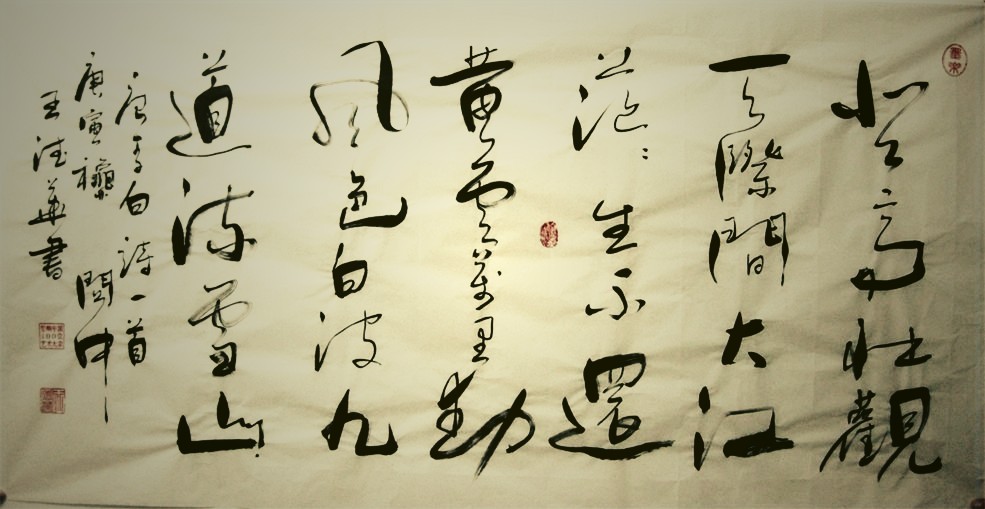 登高壯觀
天際間大江
茫〻去不還
黃雲萬里動
風色白波九
道流雪山
唐李白詩一首
庚寅穐閬中
王華書